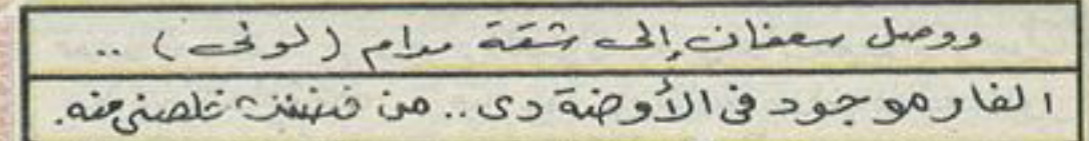 ووصل سعفان إلى شقة مدام ( ) ..
الفار موجود فى الأوضة دى .. من فضلك خلصنى منه.